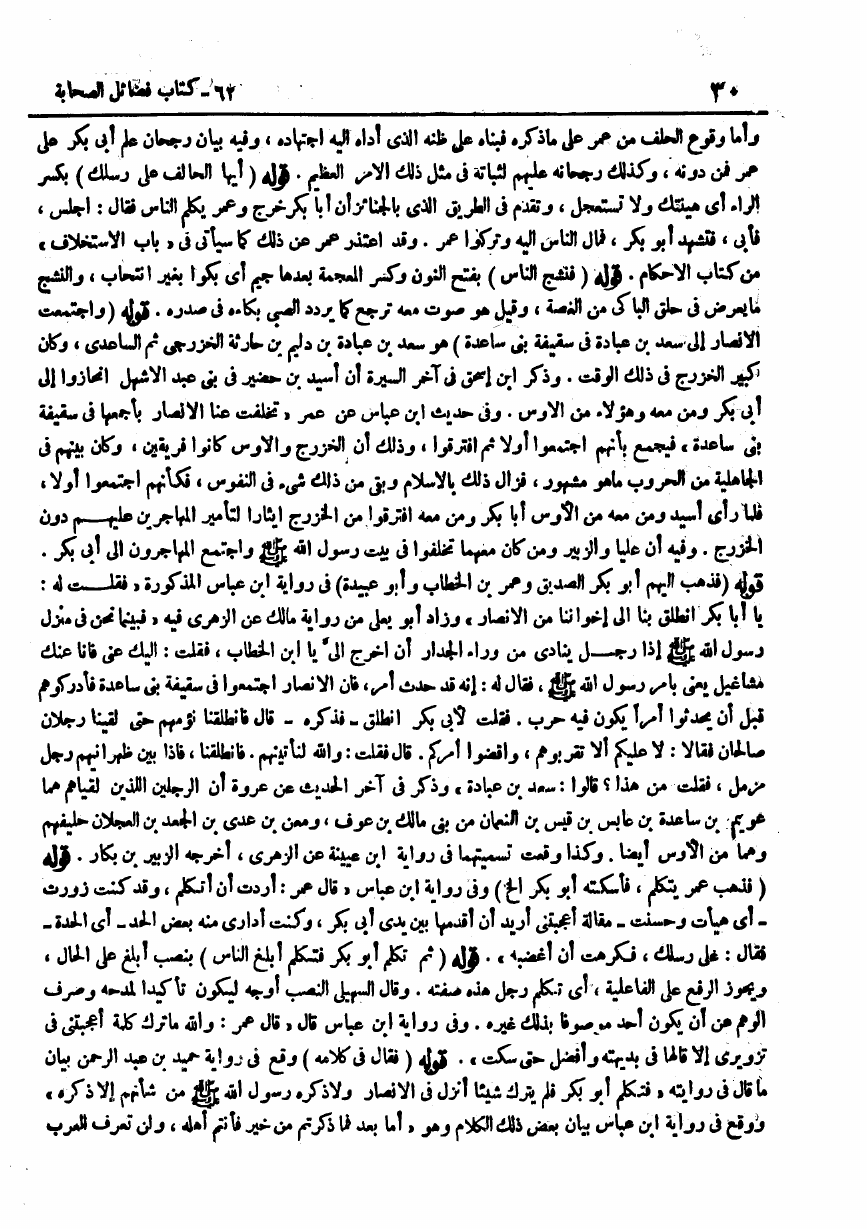 ٣٠
٦٢ ـ كتاب فضائل الصحابة
وأما وقوع الحلف من عمر على ماذكره فبناه على ظنه الذى أداه اليه اجتهاده ، وفيه بيان رجحان علم أبى بكر على
عمر فمن دونه ، وكذلك رجحانه عليهم لثباته فى مثل ذلك الامر العظيم . قوله ( أيها الحالف على رسلك ) بكسر
الراء أى هينتك ولا تستعجل ، وتقدم فى الطريق الذى بالجنائز أن أبا بكر خرج وعمر يكلم الناس فقال : اجلس ،
فأبى ، فتشهد أبو بكر ، فمال الناس اليه وتركوا عمر . وقد اعتذر عمر عن ذلك كما سيأتى فى « باب الاستخلاف »
من كتاب الاحكام . قوله ( فنشج الناس ) بفتح النون وكسر المعجمة بعدها جيم أى بكوا بغير انتحاب ، والنشج
مايعرض فى حلق الباكى من الغصة ، وقيل هو صوت معه ترجع كما يردد الصبى بكاءه فى صدره . قوله ( واجتمعت
الانصار إلى سعد بن عبادة فى سقيفة بنى ساعدة ) هو سعد بن عبادة بن دليم بن حارثة الخزرجى ثم الساعدى ، وكان
كبير الخزرج فى ذلك الوقت . وذكر ابن إسحق فى آخر السيرة أن أسيد بن حضير فى بنى عبد الاشهل انحازوا إلى
أبى بكر ومن معه وهؤلاء من الاوس . وفى حديث ابن عباس عن عمر « تخلفت عنا الانصار بأجمعها فى سقيفة
بنى ساعدة » فيجمع بأنهم اجتمعوا أولا ثم افترقوا ، وذلك أن الخزرج والاوس كانوا فريقين ، وكان بينهم فى
الجاهلية من الحروب ماهو مشهور ، فزال ذلك بالاسلام وبقى من ذلك شىء فى النفوس ، فكأنهم اجتمعوا أولا ،
فلما رأى أسيد ومن معه من الأوس أبا بكر ومن معه افترقوا من الخزرج ايثارا لتأمير المهاجرين عليهم دون
الخزرج . وفيه أن عليا والزبير ومن كان معهما تخلفوا فى بيت رسول الله ﷺ واجتمع المهاجرون الى أبى بكر .
قوله (فذهب اليهم أبو بكر الصديق وعمر بن الخطاب وأبو عبيدة) فى رواية ابن عباس المذكورة « فقلت له :
يا أبا بكر انطلق بنا الى إخواننا من الانصار » وزاد أبو يعلى من رواية مالك عن الزهرى فيه « فبينما نحن فى منزل
رسول الله ﷺ إذا رجل ينادى من وراء الجدار أن اخرج الى يا ابن الخطاب ، فقلت : اليك عنى فانا عنك
مشاغيل يعنى بامر رسول الله ﷺ ، فقال له : إنه قد حدث أمر، فان الانصار اجتمعوا فى سقيفة بنى ساعدة فأدركوهم
قبل أن يحدثوا أمراً يكون فيه حرب . فقلت لأبى بكر انطلق ـ فذكره ـ قال فانطلقنا نؤمهم حتى لقينا رجلان
صالحان فقالا : لا عليكم ألا تقربوهم ، واقضوا أمركم . قال فقلت : والله لنأتينهم . فانطلقنا ، فاذا بين ظهرانيهم رجل
مزمل ، فقلت من هذا ؟ قالوا : سعد بن عبادة » وذكر فى آخر الحديث عن عروة أن الرجلين اللذين لقياهم هما
عويم بن ساعدة بن عابس بن قيس بن النعمان من بنى مالك بن عوف ، ومعن بن عدى بن الجعد بن العجلان حليفهم
وهما من الأوس أيضا . وكذا وقعت تسميتهما فى رواية ابن عيينة عن الزهرى ، أخرجه الزبير بن بكار . قوله
( فذهب عمر يتكلم ، فأسكته أبو بكر الخ ) وفى رواية ابن عباس « قال عمر : أردت أن أتكلم ، وقد كنت زورت
ـ أى هيأت وحسنت ـ مقالة أعجبتنى أريد أن أقدمها بين يدى أبى بكر ، وكنت أدارى منه بعض الحد ـ أى الحدة ـ
فقال : على رسلك ، فكرهت أن أغضبه » . قوله ( ثم تكلم أبو بكر فتكلم أبلغ الناس ) بنصب أبلغ على الحال ،
ويجوز الرفع على الفاعلية ، أى تكلم رجل هذه صفته . وقال السهيلى النصب أوجه ليكون تأكيدا لمدحه وصرف
الوهم عن أن يكون أحد موصوفا بذلك غيره . وفى رواية ابن عباس قال « قال عمر : والله ماترك كلمة أعجبتنى فى
تزويرى إلا قالها فى بديهته وأفضل حتى سكت » . قوله ( فقال فى كلامه ) وقع فى رواية حميد بن عبد الرحمن بيان
ما قال فى روايته « فتكلم أبو بكر فلم يترك شيئا أنزل فى الانصار ولاذكره رسول الله ﷺ من شأنهم إلا ذكره »
ووقع فى رواية ابن عباس بيان بعض ذلك الكلام وهو « أما بعد فما ذكرتم من خير فأنتم أهله ، ولن تعرف العرب